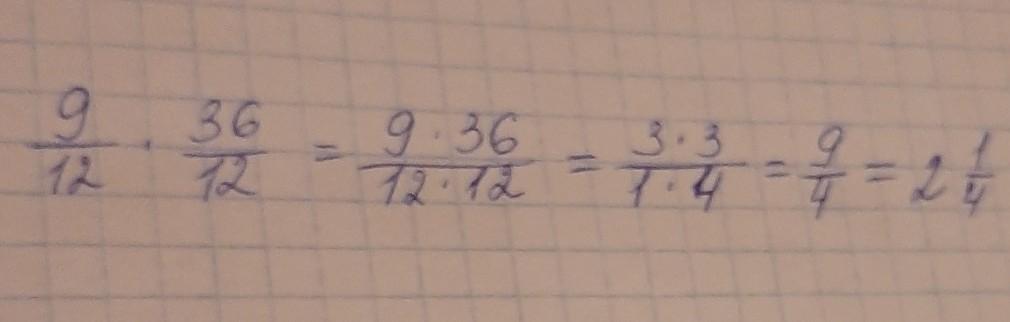 9/12 · 36/12 = 9 · 36/12 · 12 = 3 · 3/1 · 4 = 9/4 = 2 1/4